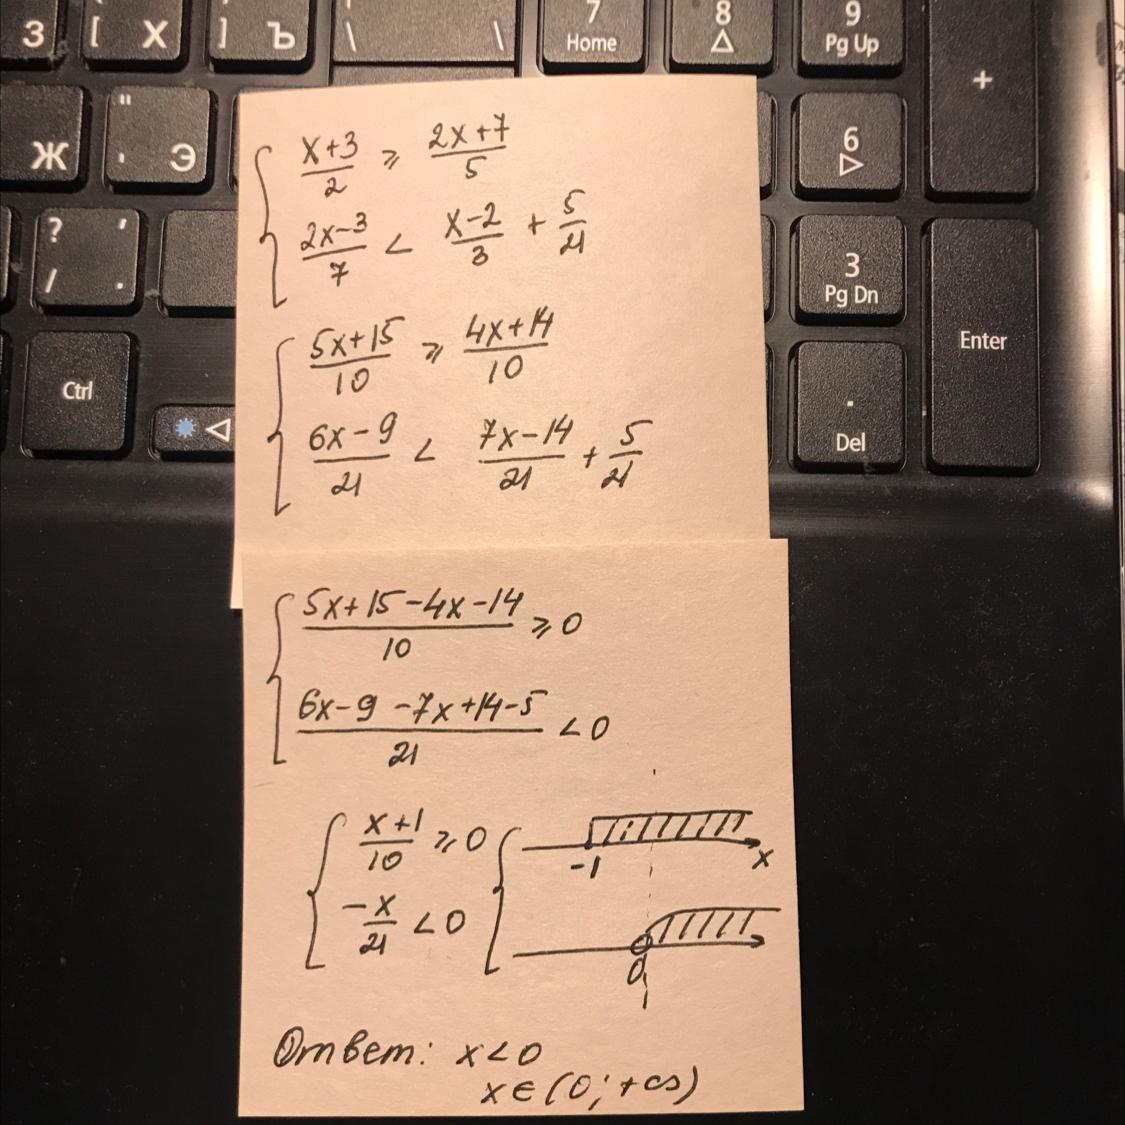 З [ Х ] Ъ \ \ 7 Home 8 9 Pg Up
+
Ж " ' Э 6
? / , . 3 Pg Dn
Ctrl . Del Enter
x+3/2 ⩾ 2x+7/5
2x-3/7 < x-2/3 + 5/21
5x+15/10 ⩾ 4x+14/10
6x-9/21 < 7x-14/21 + 5/21
5x+15-4x-14/10 ⩾ 0
6x-9-7x+14-5/21 < 0
x+1/10 ⩾ 0
-1 x
-x/21 < 0
0
Ответ: x<0
x∈(0;+∞)